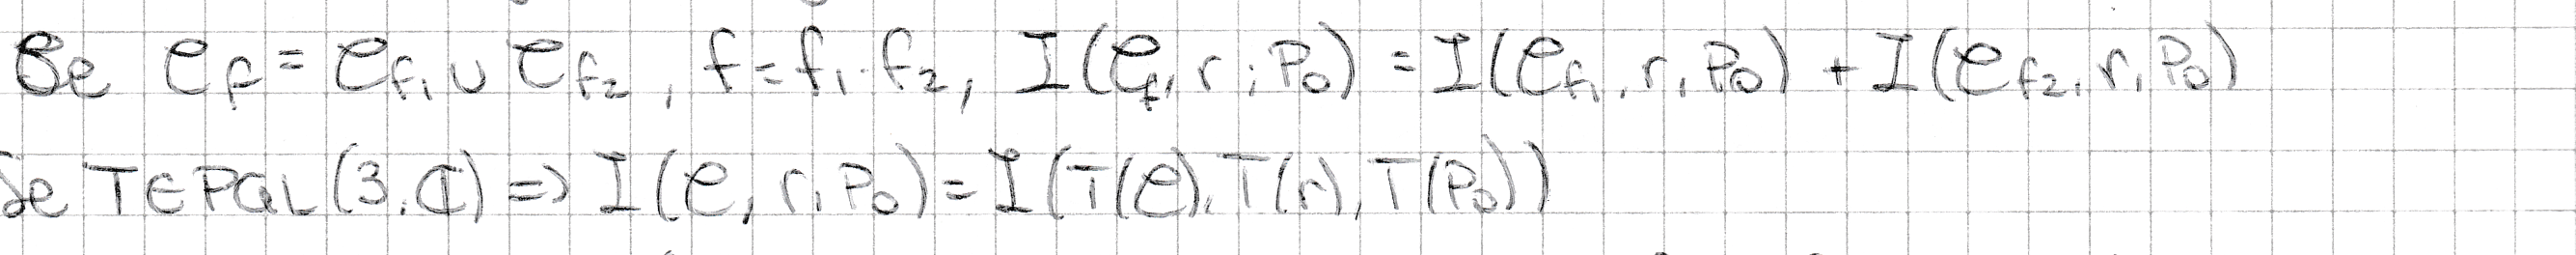 Se 𝒞_f = 𝒞_f₁ ∪ 𝒞_f₂, f = f₁·f₂, I(𝒞_f, r; P₀) = I(𝒞_f₁, r, P₀) + I(𝒞_f₂, r, P₀)
Se T ∈ PGL(3, ℂ) => I(𝒞, r, P₀) = I(T(𝒞), T(r), T(P₀))